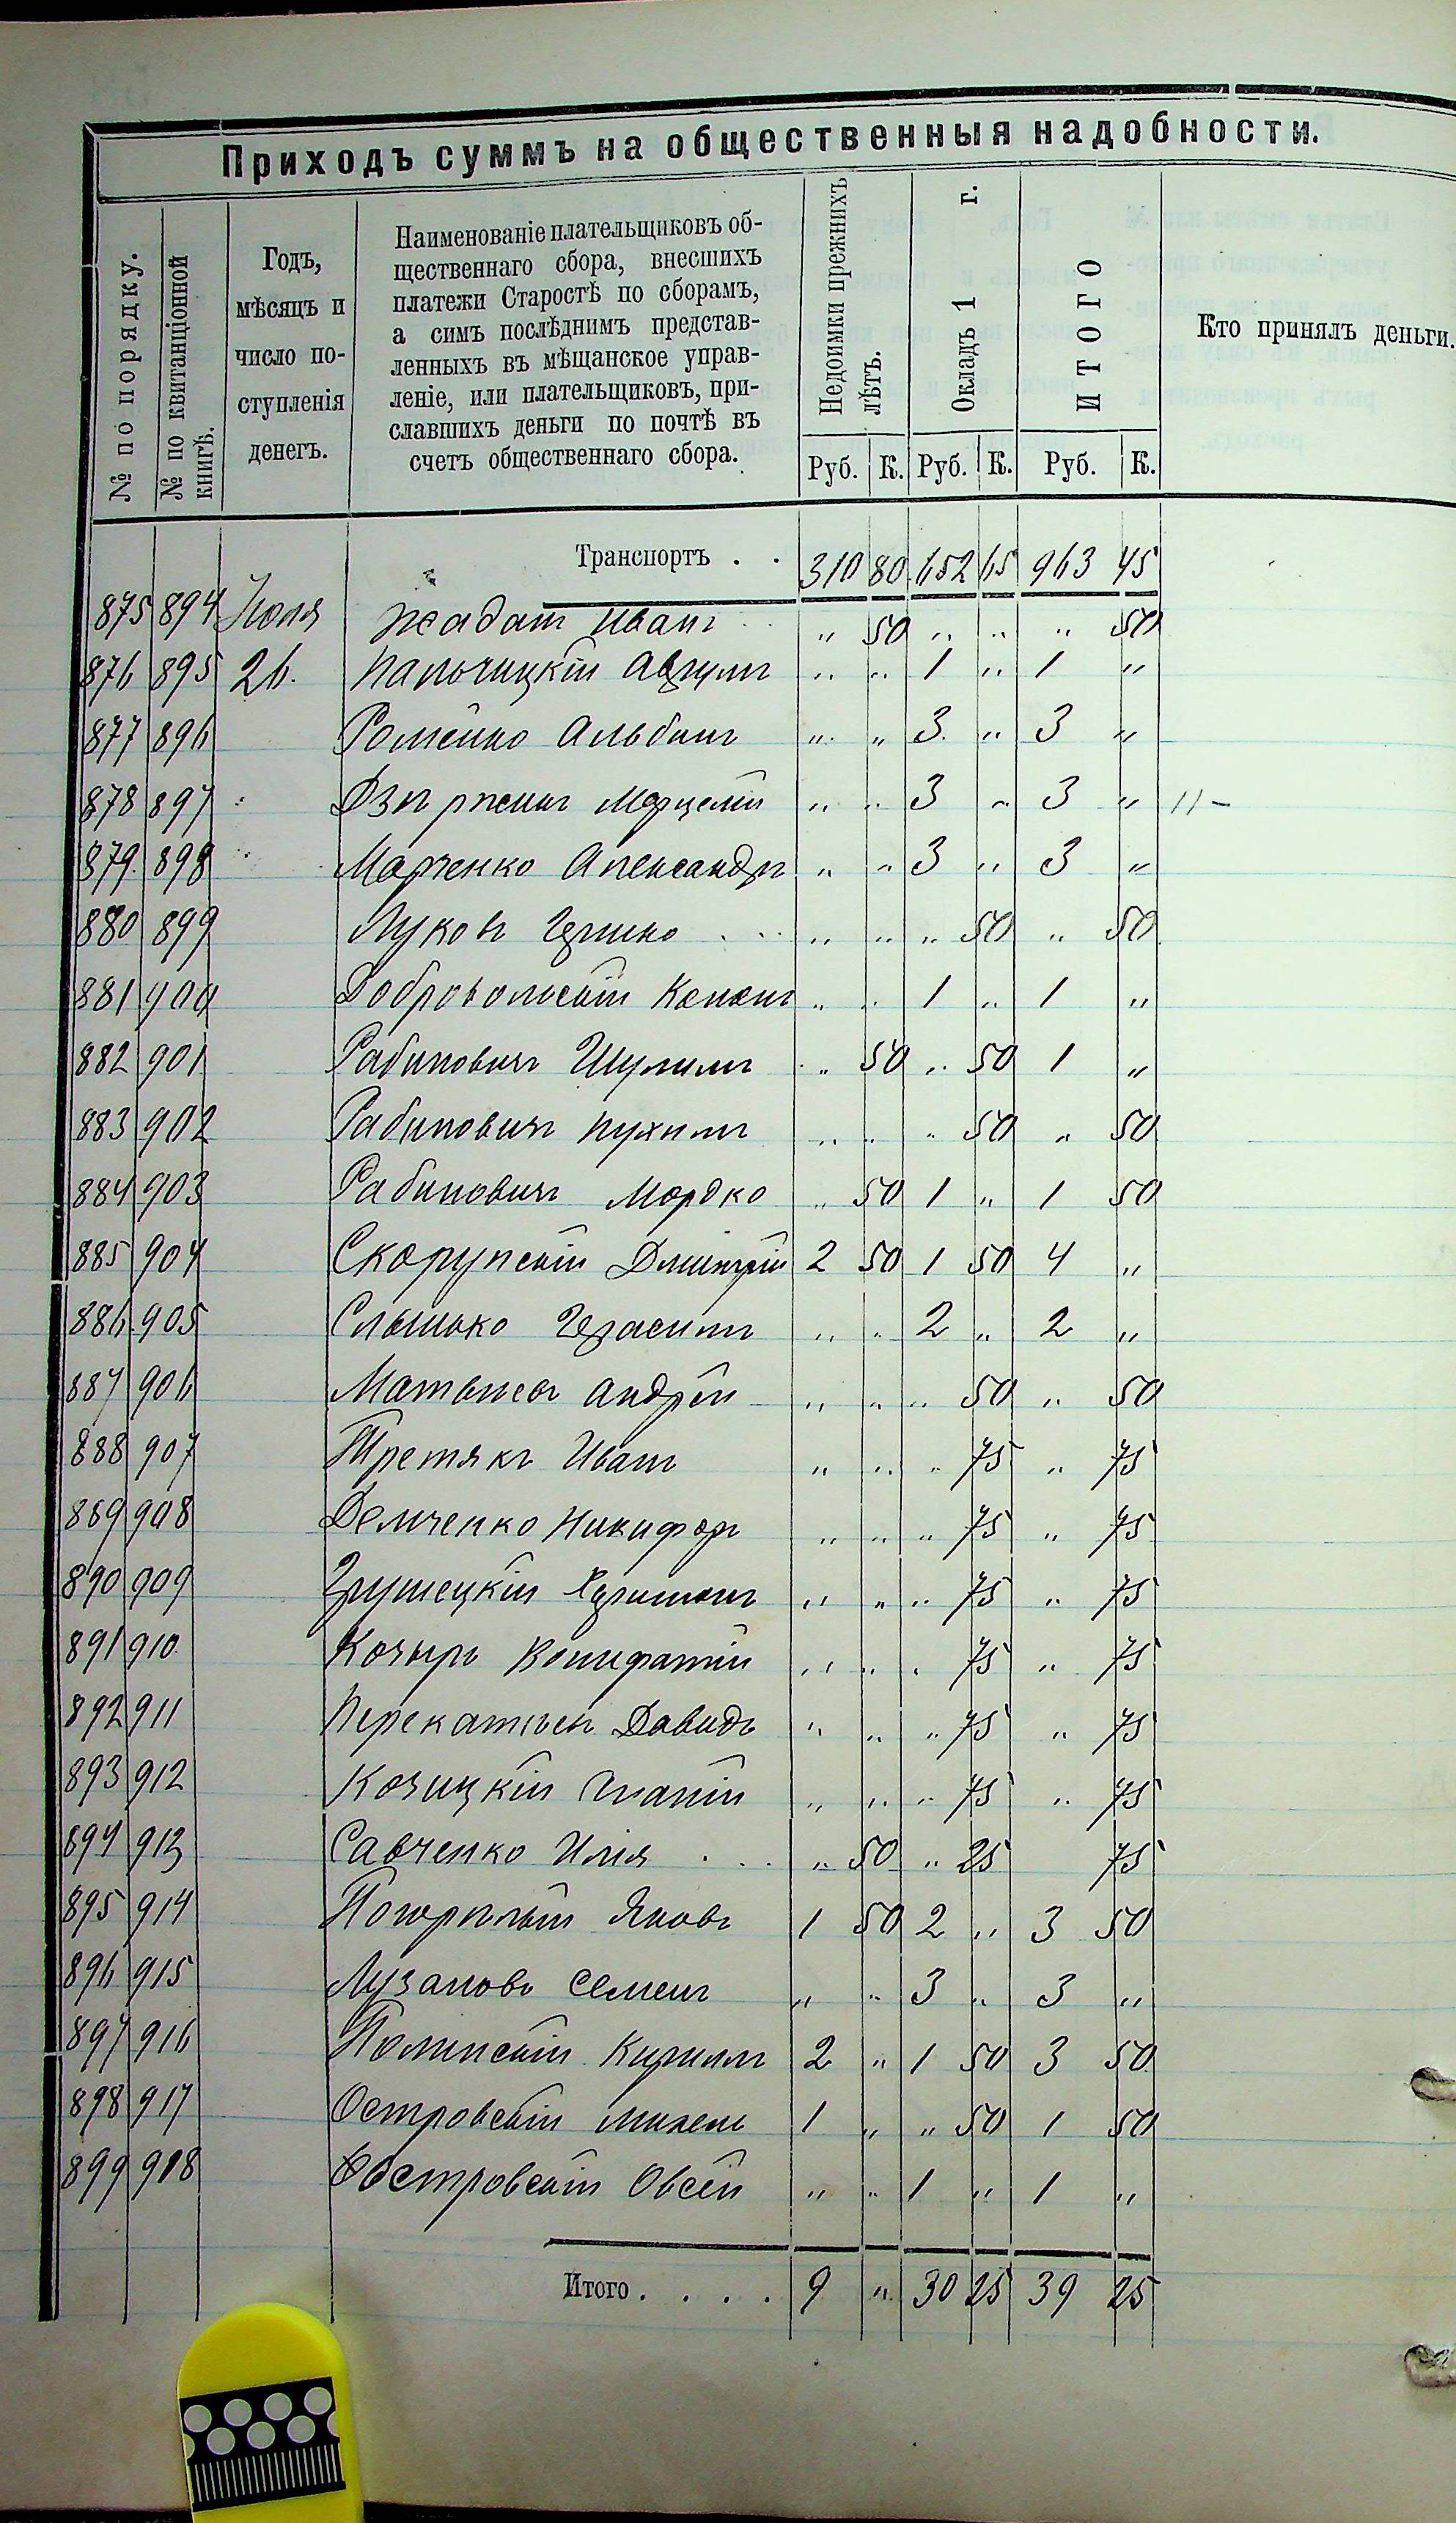 Приходъ суммъ на общественныя надобности.
№ по порядку.
№ по квитанціонной книгѣ.
Годъ, мѣсяцъ и число поступленія денегъ.
Наименованіе плательщиковъ об-
щественнаго сбора, внесшихъ
платежи Старостѣ по сборамъ,
а симъ послѣднимъ представ-
ленныхъ въ мѣщанское управ-
леніе, или плательщиковъ, при-
славшихъ деньги по почтѣ въ
счетъ общественнаго сбора.
Недоимки прежнихъ лѣтъ.
Окладъ 1 г.
ИТОГО
Кто принялъ деньги.
Руб. К. Руб. К. Руб. К.
Транспортъ . . 310 80 652 65 963 45
875 894 Іюля Жадан Иванъ " 50 " " " 50
876 895 26. " " 1 " 1 "
877 896 Роменко Альбинъ " " 3 " 3 "
878 897 " " 3 " 3 " "–
879 898 Марченко Александръ " " 3 " 3 "
880 899 Луковъ " " " 50 " 50
881 900 Добровольскій Кононъ " " 1 " 1 "
882 901 Рабиновичъ Шулимъ " 50 " 50 1 "
883 902 Рабиновичъ Нухимъ " " " 50 " 50
884 903 Рабиновичъ Мордко " 50 1 " 1 50
885 904 Скорупскій Дмитрій 2 50 1 50 4 "
886 905 Герасимъ " " 2 " 2 "
887 906 Андрей " " " 50 " 50
888 907 Третякъ Иванъ " " " 75 " 75
889 908 Демченко Никифоръ " " " 75 " 75
890 909 Грушецкій " " " 75 " 75
891 910 Козырь Вонифатій " " " 75 " 75
892 911 Давидъ " " " 75 " 75
893 912 Козицкій " " " 75 " 75
894 913 Савченко Илія . . . " 50 " 25 75
895 914 Погорѣлый Яковъ 1 50 2 " 3 50
896 915 Лузановъ Семенъ " " 3 " 3 "
897 916 Полинскій Кириллъ 2 " 1 50 3 50
898 917 Островскій Михель 1 " " 50 1 50
899 918 Островскій Овсей " " 1 " 1 "
Итого . . . . 9 " 30 25 39 25